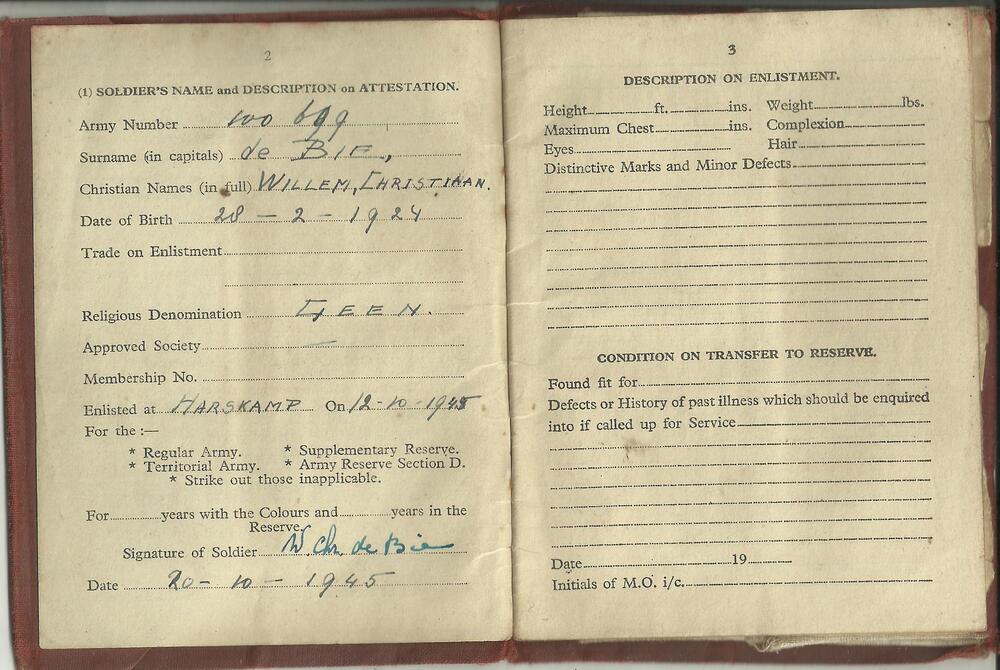 2
(1) SOLDIER'S NAME and DESCRIPTION on ATTESTATION.
Army Number 100 699
Surname (in capitals) de BIE,
Christian Names (in full) WILLEM, CHRISTIAAN.
Date of Birth 28 - 2 - 1924
Trade on Enlistment
Religious Denomination GEEN.
Approved Society —
Membership No.
Enlisted at HARSKAMP On 12-10-1945
For the :—
* Regular Army. * Supplementary Reserve.
* Territorial Army. * Army Reserve Section D.
* Strike out those inapplicable.
For years with the Colours and years in the
Reserve.
Signature of Soldier W Chr. de Bie
Date 20 - 10 - 1945
3
DESCRIPTION ON ENLISTMENT.
Height ft. ins. Weight lbs.
Maximum Chest ins. Complexion
Eyes Hair
Distinctive Marks and Minor Defects
CONDITION ON TRANSFER TO RESERVE.
Found fit for
Defects or History of past illness which should be enquired
into if called up for Service
Date 19
Initials of M.O. i/c.